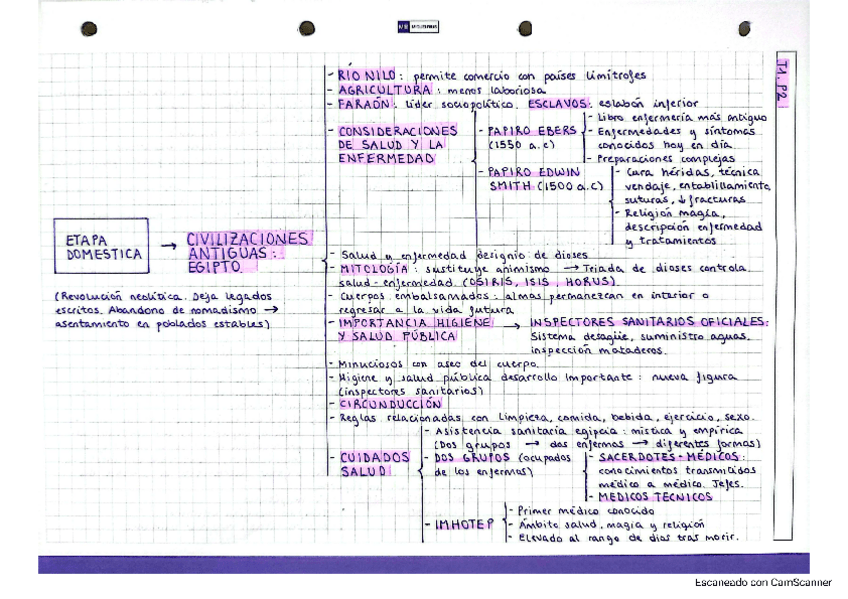 T1. P2
- RIO NILO: permite comercio con países limítrofes
- AGRICULTURA: menos laboriosa
- FARAÓN: líder sociopolítico. ESCLAVOS: eslabón inferior
- CONSIDERACIONES
DE SALUD Y LA
ENFERMEDAD
- PAPIRO EBERS
(1550 a.c)
- Libro enfermería más antiguo
- Enfermedades y síntomas
conocidos hoy en día.
- Preparaciones complejas
- PAPIRO EDWIN
SMITH (1500 a.c)
- Cura héridas, técnica
vendaje, entablillamiento,
suturas, ↓ fracturas
- Religión magia,
descripción enfermedad
y tratamientos
ETAPA
DOMESTICA
→ CIVILIZACIONES
ANTIGUAS:
EGIPTO
(Revolución neolítica. Deja legados
escritos. Abandono de nomadismo →
asentamiento en poblados estables)
- Salud y enfermedad designio de dioses
- MITOLOGÍA: sustituye animismo → Triada de dioses controla
salud-enfermedad (OSIRIS, ISIS, HORUS).
- Cuerpos embalsamados: almas permanezcan en interior o
regresar a la vida futura
- IMPORTANCIA HIGIENE
Y SALUD PÚBLICA
→ INSPECTORES SANITARIOS OFICIALES:
Sistema desagüe, suministro aguas,
inspección mataderos.
- Minuciosos con aseo del cuerpo.
- Higiene y salud pública desarrollo importante: nueva figura
(inspectores sanitarios)
- CIRCUNDUCCIÓN
- Reglas relacionadas con limpieza, comida, bebida, ejercicio, sexo.
- CUIDADOS
SALUD
- Asistencia sanitaria egipcia: mística y empírica
(Dos grupos → dos enfermos → diferentes formas)
- DOS GRUPOS (ocupados
de los enfermos)
- SACERDOTES-MÉDICOS:
conocimientos transmitidos
médico a médico. Jefes.
- MEDICOS TECNICOS
- IMHOTEP
- Primer médico conocido
- Ámbito salud, magia y religión
- Elevado al rango de dios tras morir.
Escaneado con CamScanner